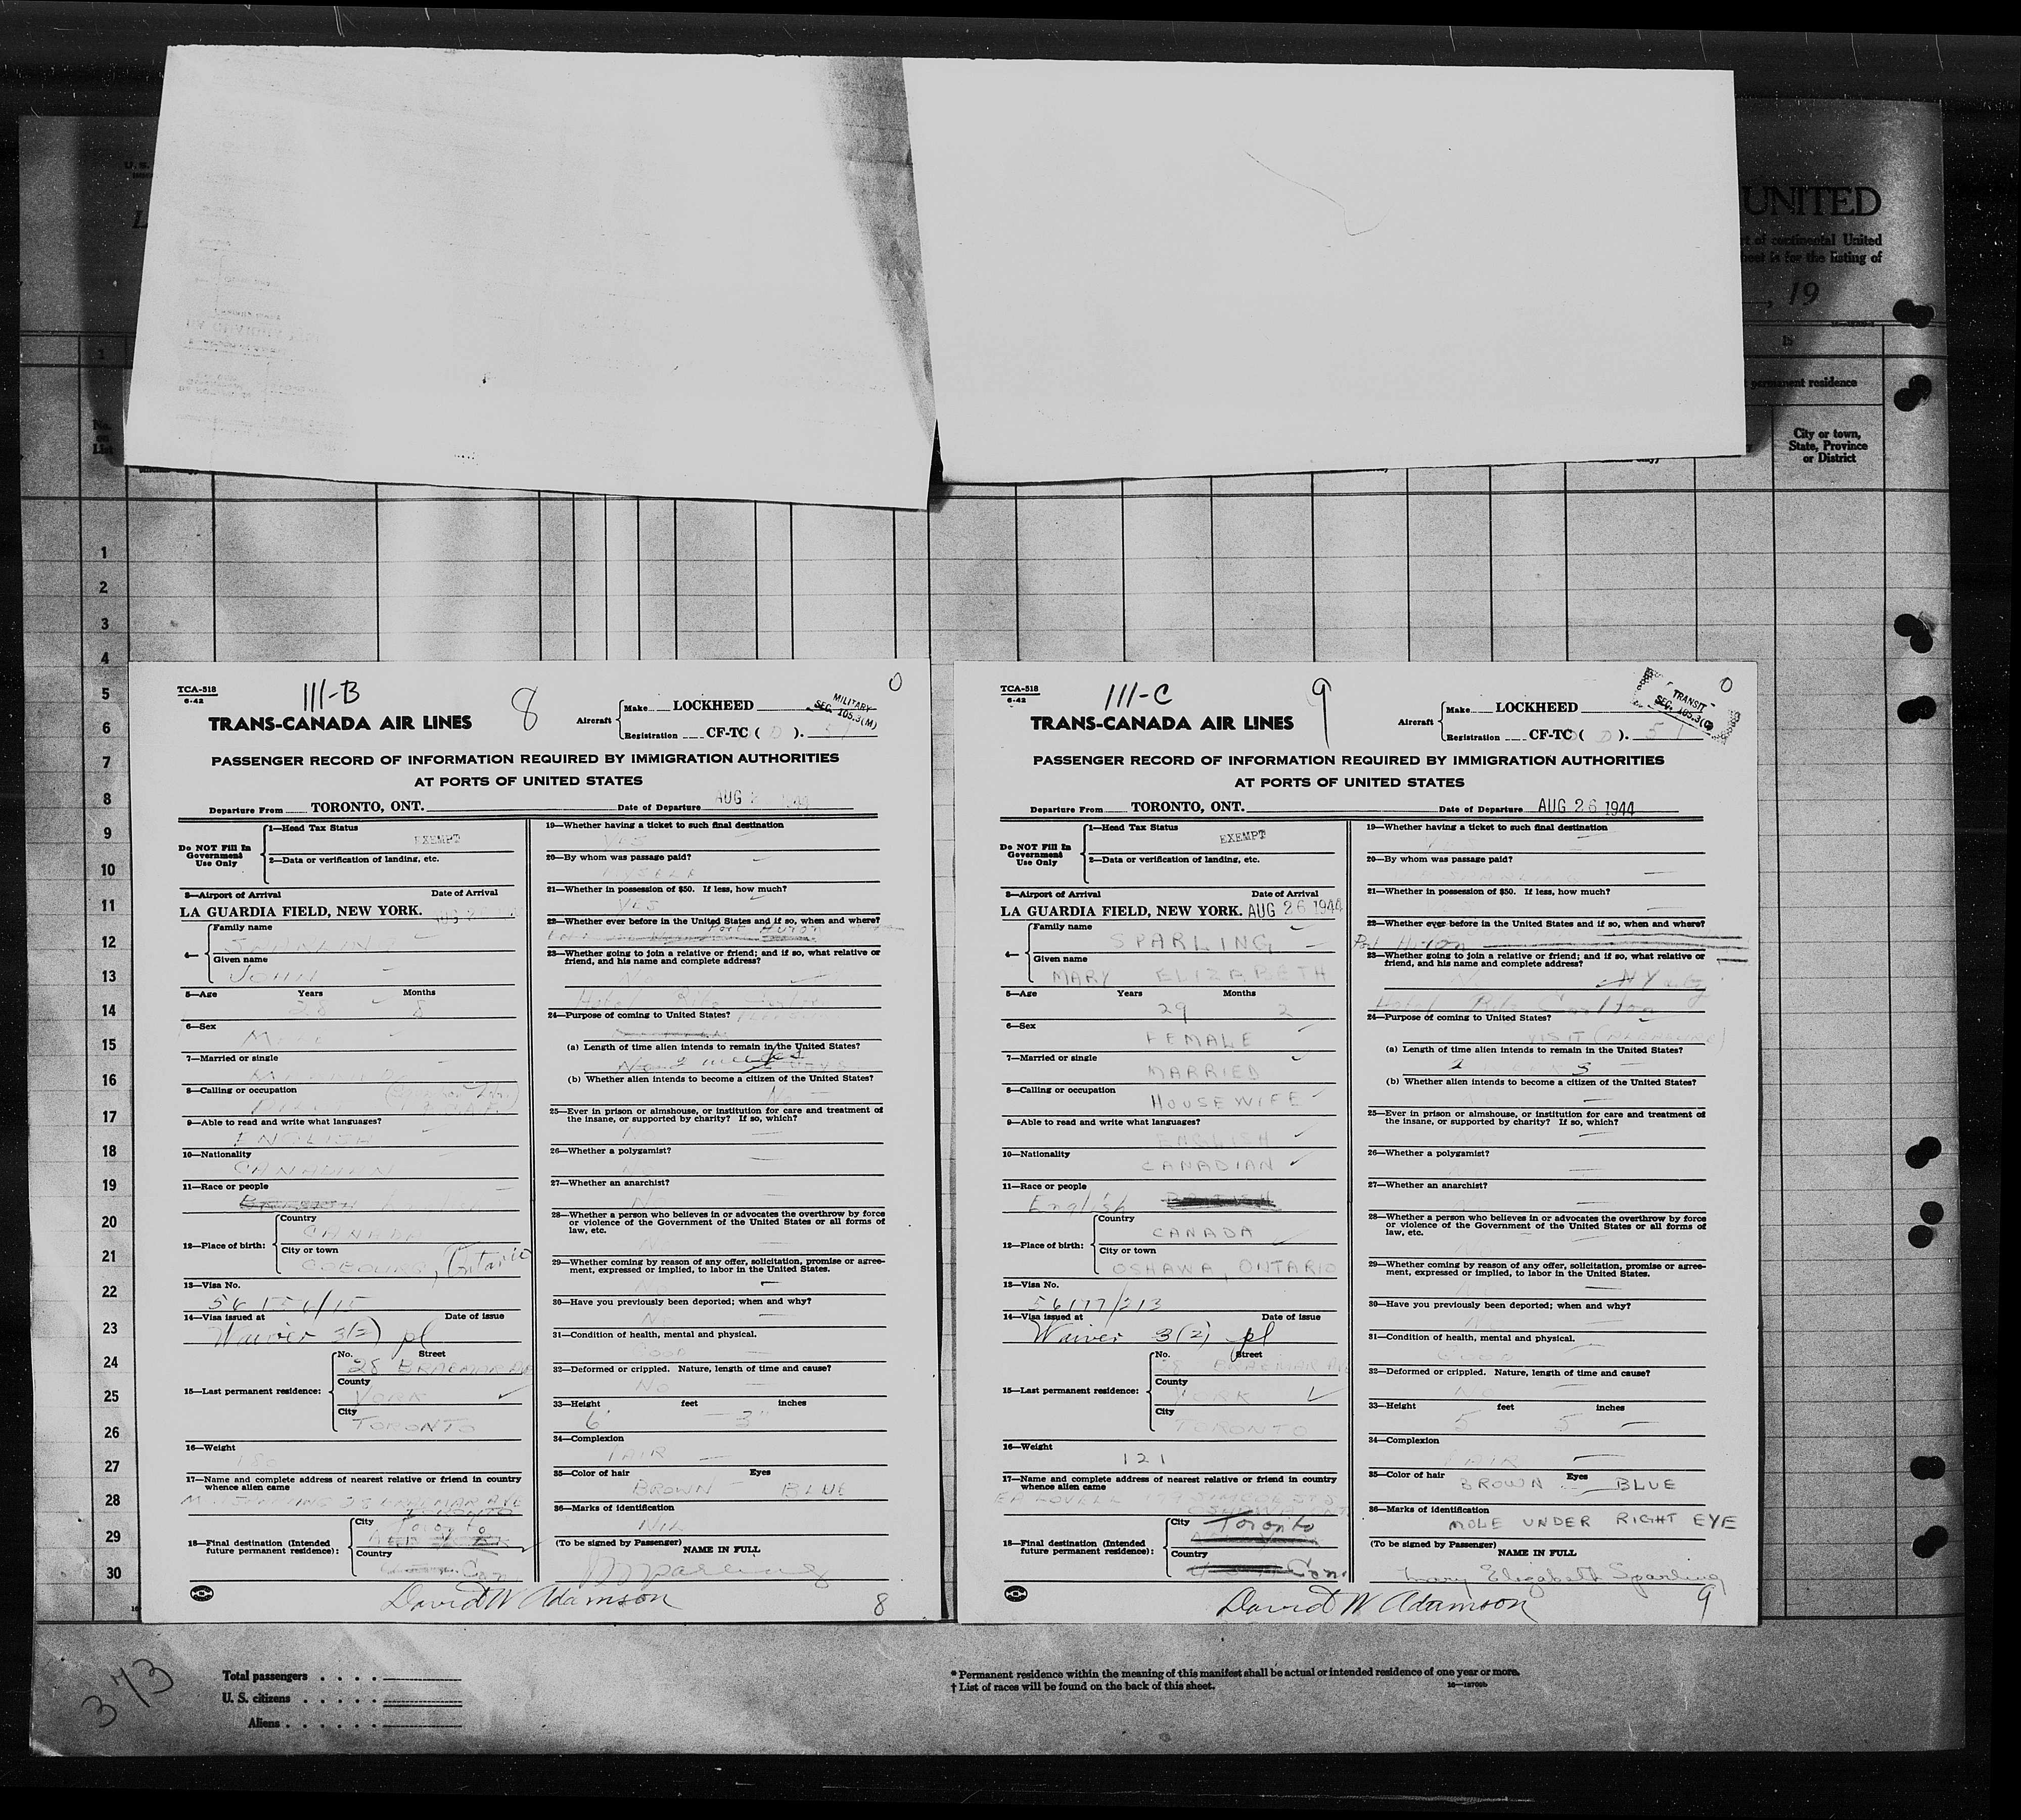 UNITED
t of continental United
eet is for the listing of
, 19
permanent residence
City or town,
State, Province
or District
No.
on
List
1
1
2
3
4
5
6
7
8
9
10
11
12
13
14
15
16
17
18
19
20
21
22
23
24
25
26
27
28
29
30
TCA-518
6-42
III-B
8
0
TRANS-CANADA AIR LINES
Aircraft
Make LOCKHEED
Registration CF-TC ( D ). 51
MILITARY
SEC. 105.3(M)
PASSENGER RECORD OF INFORMATION REQUIRED BY IMMIGRATION AUTHORITIES
AT PORTS OF UNITED STATES
Departure From TORONTO, ONT. Date of Departure AUG 2 1944
Do NOT Fill In
Government
Use Only
1—Head Tax Status
EXEMPT
2—Data or verification of landing, etc.
3—Airport of Arrival Date of Arrival
LA GUARDIA FIELD, NEW YORK.
4—
Family name
Given name
JOHN
5—Age Years Months
28 8
6—Sex
7—Married or single
8—Calling or occupation
9—Able to read and write what languages?
ENGLISH
10—Nationality
CANADIAN
11—Race or people
12—Place of birth:
Country
CANADA
City or town
COBOURG, Ontario
13—Visa No.
14—Visa issued at Date of issue
Waiver 3(2) pl
15—Last permanent residence:
No. Street
28 BRAEMAR AVE
County
YORK
City
TORONTO
16—Weight
180
17—Name and complete address of nearest relative or friend in country
whence alien came
28 BRAEMAR AVE
TORONTO
18—Final destination (Intended
future permanent residence):
City
Toronto
Country
Can
19—Whether having a ticket to such final destination
YES
20—By whom was passage paid?
MYSELF
21—Whether in possession of $50. If less, how much?
YES
22—Whether ever before in the United States and if so, when and where?
Port Huron
23—Whether going to join a relative or friend; and if so, what relative or
friend, and his name and complete address?
Hotel Ritz Carlton
24—Purpose of coming to United States?
(a) Length of time alien intends to remain in the United States?
(b) Whether alien intends to become a citizen of the United States?
No
25—Ever in prison or almshouse, or institution for care and treatment of
the insane, or supported by charity? If so, which?
26—Whether a polygamist?
27—Whether an anarchist?
No
28—Whether a person who believes in or advocates the overthrow by force
or violence of the Government of the United States or all forms of
law, etc.
No
29—Whether coming by reason of any offer, solicitation, promise or agree-
ment, expressed or implied, to labor in the United States.
30—Have you previously been deported; when and why?
No
31—Condition of health, mental and physical.
GOOD
32—Deformed or crippled. Nature, length of time and cause?
No
33—Height feet inches
6 3
34—Complexion
FAIR
35—Color of hair Eyes
BROWN BLUE
36—Marks of identification
NIL
(To be signed by Passenger)
NAME IN FULL
David W Adamson
8
TCA-518
6-42
III-C
9
0
TRANS-CANADA AIR LINES
Aircraft
Make LOCKHEED
Registration CF-TC ( D ). 51
TRANSIT
SEC. 105.3(C)
PASSENGER RECORD OF INFORMATION REQUIRED BY IMMIGRATION AUTHORITIES
AT PORTS OF UNITED STATES
Departure From TORONTO, ONT. Date of Departure AUG 26 1944
Do NOT Fill In
Government
Use Only
1—Head Tax Status
EXEMPT
2—Data or verification of landing, etc.
3—Airport of Arrival Date of Arrival
LA GUARDIA FIELD, NEW YORK. AUG 26 1944
4—
Family name
SPARLING
Given name
MARY ELIZABETH
5—Age Years Months
29 2
6—Sex
FEMALE
7—Married or single
MARRIED
8—Calling or occupation
HOUSEWIFE
9—Able to read and write what languages?
ENGLISH
10—Nationality
CANADIAN
11—Race or people
English
12—Place of birth:
Country
CANADA
City or town
OSHAWA, ONTARIO
13—Visa No.
56177/213
14—Visa issued at Date of issue
Waiver 3(2) pl
15—Last permanent residence:
No. Street
28 BRAEMAR AVE
County
YORK
City
TORONTO
16—Weight
121
17—Name and complete address of nearest relative or friend in country
whence alien came
EA LOVELL SIMCOE ST S
OSHAWA ONT
18—Final destination (Intended
future permanent residence):
City
Toronto
Country
Can
19—Whether having a ticket to such final destination
20—By whom was passage paid?
21—Whether in possession of $50. If less, how much?
22—Whether ever before in the United States and if so, when and where?
Port Huron
23—Whether going to join a relative or friend; and if so, what relative or
friend, and his name and complete address?
NY City
Hotel Ritz Carlton
24—Purpose of coming to United States?
VISIT
(a) Length of time alien intends to remain in the United States?
2
(b) Whether alien intends to become a citizen of the United States?
25—Ever in prison or almshouse, or institution for care and treatment of
the insane, or supported by charity? If so, which?
26—Whether a polygamist?
27—Whether an anarchist?
28—Whether a person who believes in or advocates the overthrow by force
or violence of the Government of the United States or all forms of
law, etc.
29—Whether coming by reason of any offer, solicitation, promise or agree-
ment, expressed or implied, to labor in the United States.
30—Have you previously been deported; when and why?
31—Condition of health, mental and physical.
GOOD
32—Deformed or crippled. Nature, length of time and cause?
NO
33—Height feet inches
5 5
34—Complexion
FAIR
35—Color of hair Eyes
BROWN BLUE
36—Marks of identification
MOLE UNDER RIGHT EYE
(To be signed by Passenger)
NAME IN FULL
Mary Elizabeth Sparling
David W Adamson
9
373
Total passengers
U. S. citizens
Aliens
* Permanent residence within the meaning of this manifest shall be actual or intended residence of one year or more.
† List of races will be found on the back of this sheet.